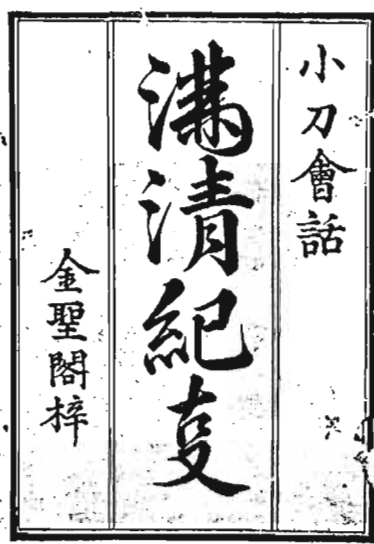 小刀會話
滿清紀叓
金聖閣梓